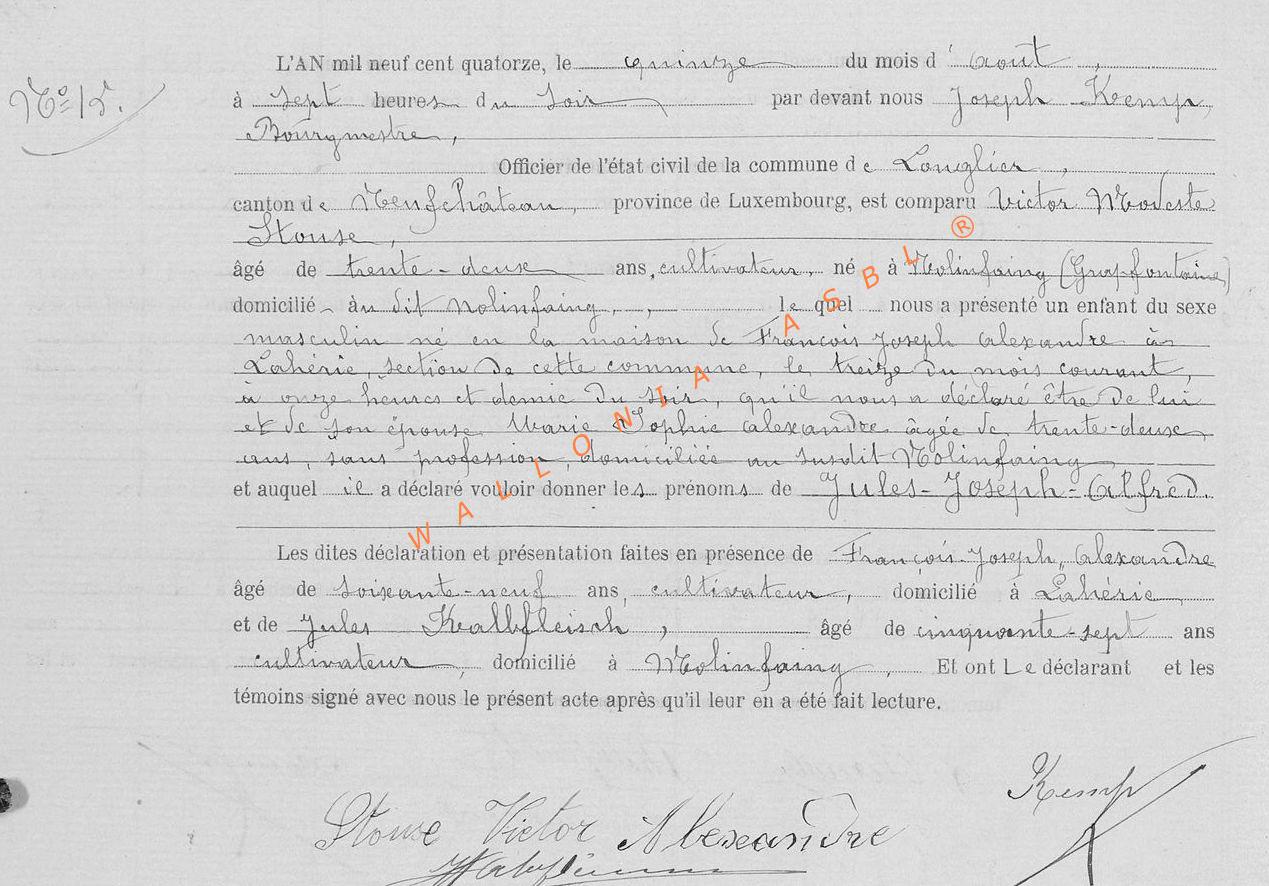 N° 15.
L'AN mil neuf cent quatorze, le quinze du mois d'août,
à sept heures du soir par devant nous Joseph Kemp,
Bourgmestre,
Officier de l'état civil de la commune de Longlier,
canton de Neufchâteau, province de Luxembourg, est comparu Victor Modeste
Stouse,
âgé de trente-deux ans, cultivateur, né à Nolinfaing (Grapfontaine)
domicilié au dit Nolinfaing, lequel nous a présenté un enfant du sexe
masculin né en la maison de François Joseph Alexandre à
Lahérie, section de cette commune, le treize du mois courant,
à onze heures et demie du soir, qu'il nous a déclaré être de lui
et de son épouse Marie Sophie Alexandre âgée de trente-deux
ans, sans profession, domiciliée au susdit Nolinfaing
et auquel il a déclaré vouloir donner les prénoms de Jules-Joseph-Alfred.
Les dites déclaration et présentation faites en présence de François Joseph, Alexandre
âgé de soixante-neuf ans, cultivateur, domicilié à Lahérie,
et de Jules Kalbfleisch, âgé de cinquante-sept ans
cultivateur, domicilié à Nolinfaing, Et ont Le déclarant et les
témoins signé avec nous le présent acte après qu'il leur en a été fait lecture.
WALLONIA ASBL ®
Kemp
Stouse Victor Alexandre